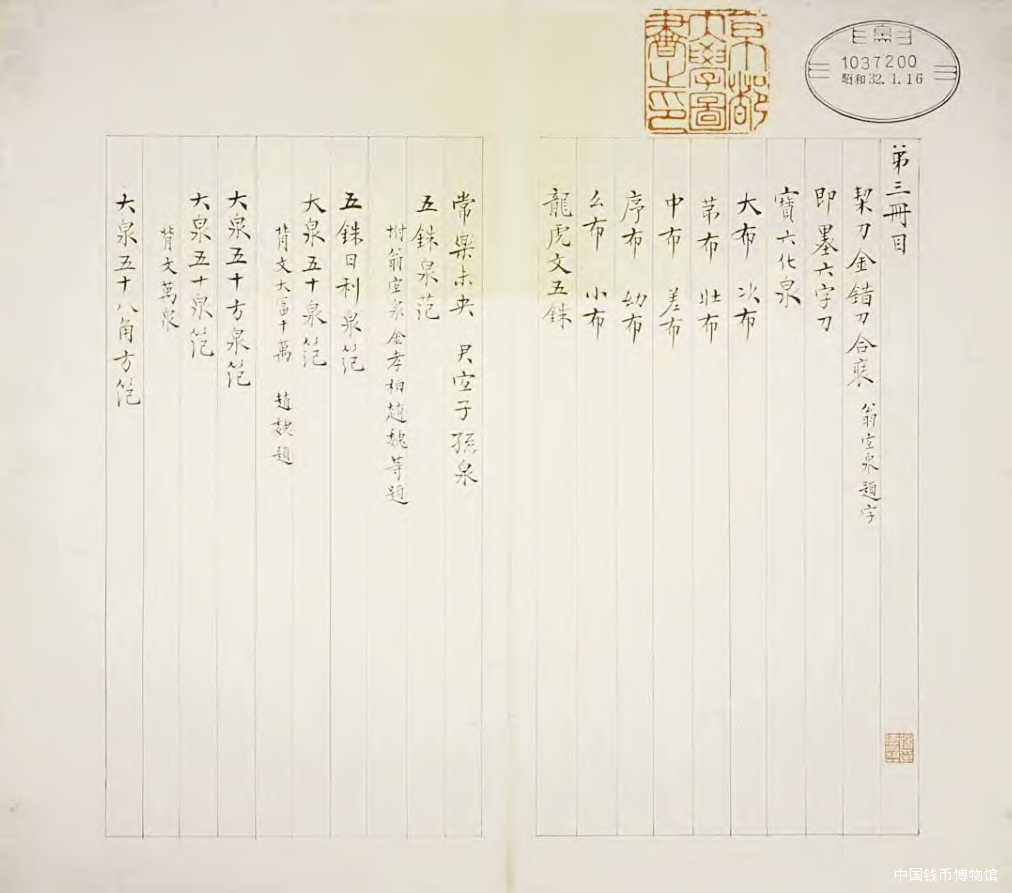 京都
大學圖
書之印
1037200
昭和32.1.16
第三冊目
栔刀金錯刀合裘 翁宜泉題字
即墨六字刀
寶六化泉
大布 次布
苐布 壯布
中布 差布
序布 幼布
幺布 小布
龍虎文五銖
常樂未央 君宜子孫泉
五銖泉范
坿翁宜泉金孝柏趙魏等題
五銖日利泉笵
大泉五十泉笵
背文大富十萬 趙魏題
大泉五十方泉笵
大泉五十泉笵
背文萬泉
大泉五十八角方笵
中国钱币博物馆